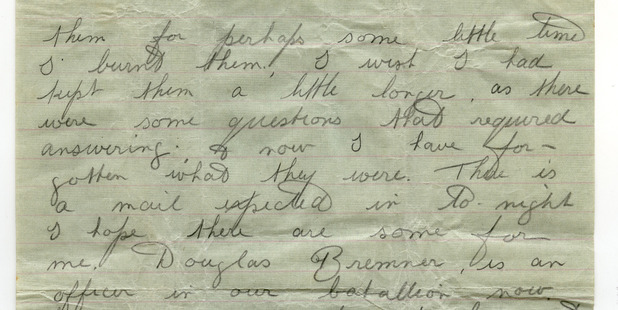 them for perhaps some little time
I burnt them. I wish I had
kept them a little longer, as there
were some questions that required
answering. & now I have for-
gotten what they were. There is
a mail expected in to-night
I hope there are some for
me. Douglas Bremner, is an
officer in our batallion now.